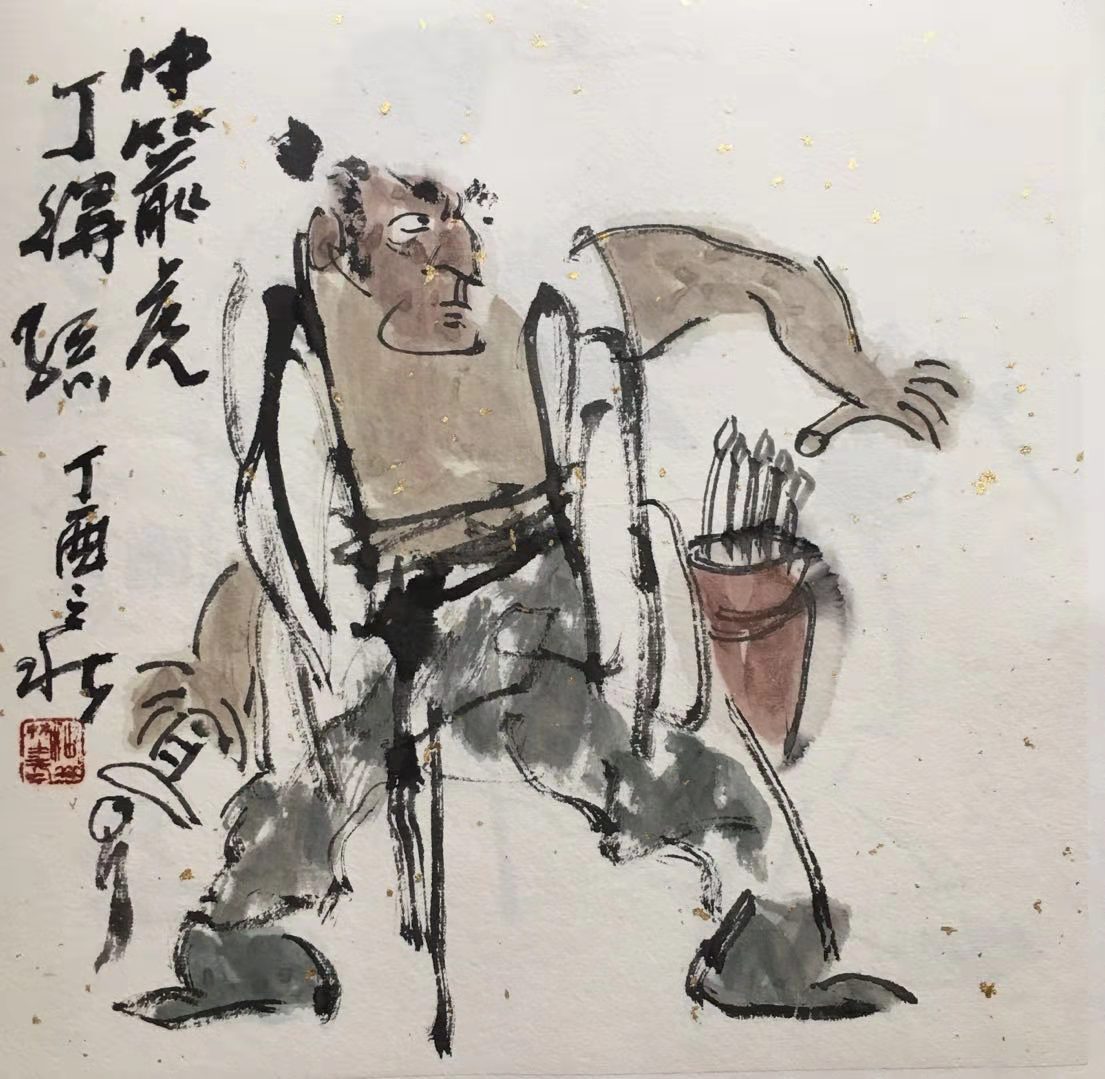 中箭虎
丁得孫 丁酉之秋